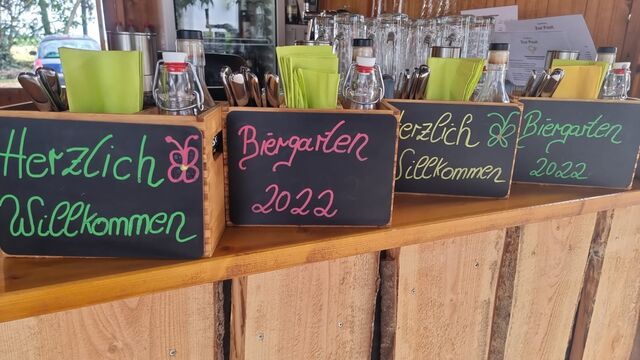 Herzlich
Willkommen
Biergarten
2022
Herzlich
Willkommen
Biergarten
2022